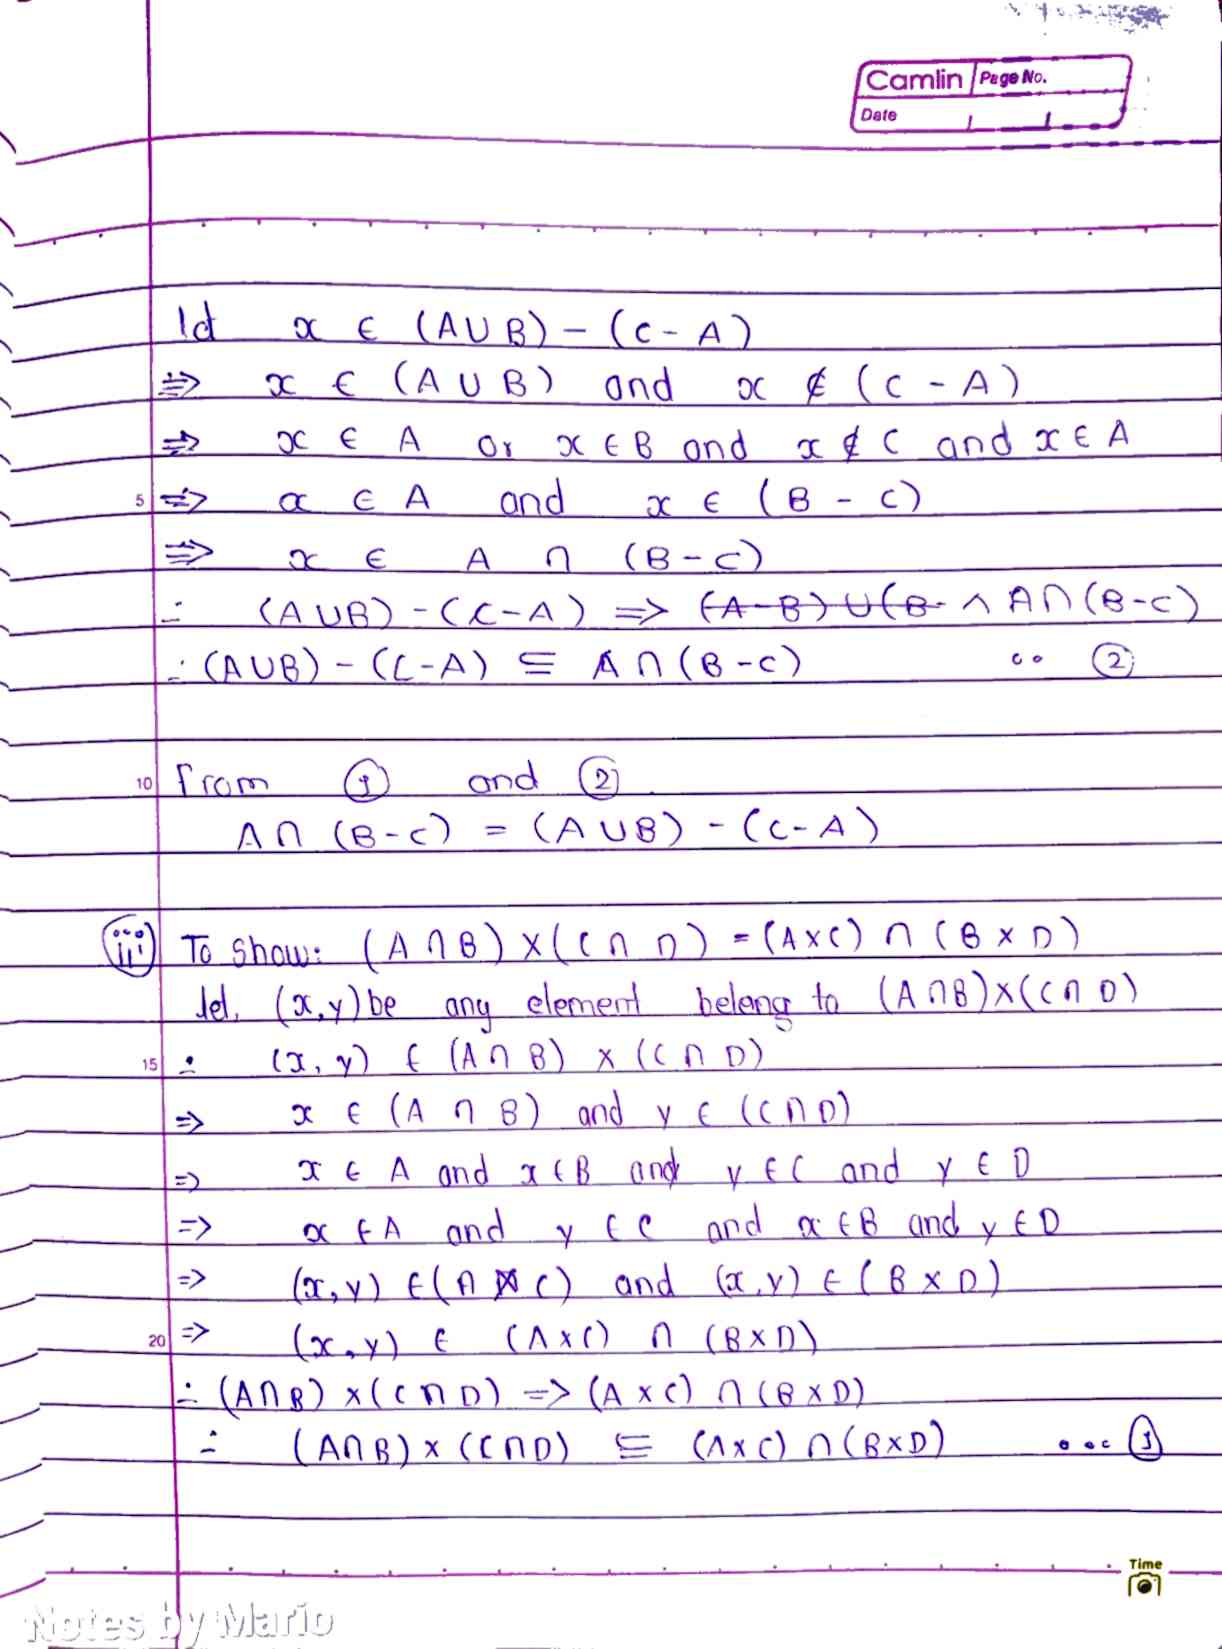 Camlin Page No.
Date
let x ∈ (A∪B) - (C - A)
⇒ x ∈ (A ∪ B) and x ∉ (C - A)
⇒ x ∈ A or x ∈ B and x ∉ C and x ∈ A
5 ⇒ x ∈ A and x ∈ (B - C)
⇒ x ∈ A ∩ (B - C)
∴ (A∪B) - (C-A) => (A-B) ∪ (B- ^ A∩(B-C)
∴ (A∪B) - (C-A) ⊆ A∩(B-C) .. ②
10 from ① and ②
A∩ (B-C) = (A∪B) - (C-A)
(iii) To show: (A∩B)×(C∩D) = (A×C) ∩ (B×D)
let, (x,y) be any element belong to (A∩B)×(C∩D)
15 ∴ (x, y) ∈ (A∩B) × (C∩D)
⇒ x ∈ (A∩B) and y ∈ (C∩D)
=> x ∈ A and x ∈ B and y ∈ C and y ∈ D
=> x ∈ A and y ∈ C and x ∈ B and y ∈ D
=> (x,y) ∈ (A × C) and (x,y) ∈ (B×D)
20 => (x,y) ∈ (A×C) ∩ (B×D)
∴ (A∩B)×(C∩D) => (A×C) ∩ (B×D)
∴ (A∩B)×(C∩D) ⊆ (A×C) ∩ (B×D) ... ①
Time
Notes by Mario